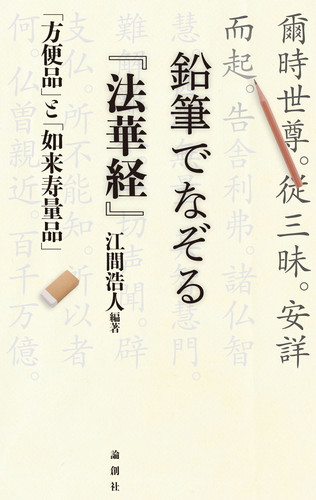 爾時世尊。従三昧。安詳
而起。告舎利弗。諸仏智
鉛筆でなぞる
『法華経』
江間浩人 編著
「方便品」と「如来寿量品」
慧門。
難解
切声聞。辟
支仏。所不能知。所以者
何。仏曽親近。百千万億。
論創社